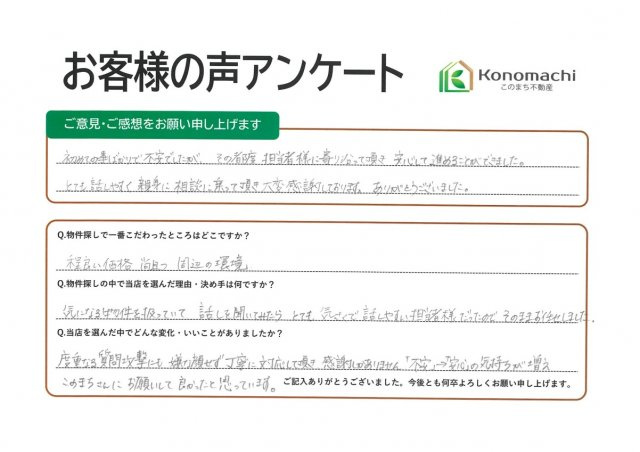 お客様の声アンケート
Konomachi
このまち不動産
ご意見・ご感想をお願い申し上げます
初めての事ばかりで不安でしたが、その都度、担当者様に寄りそって頂き 安心して進めることができました。
とても話しやすく親身に相談に乗って頂き大変感謝しております。ありがとうございました。
Q.物件探しで一番こだわったところはどこですか？
程良い価格 尚且つ 周辺の環境
Q.物件探しの中で当店を選んだ理由・決め手は何ですか？
気になる物件を扱っていて 話しを聞いてみたら とても 気さくで話しやすい担当者様だったので そのままお任せしました。
Q.当店を選んだ中でどんな変化・いいことがありましたか？
度重なる質問攻撃にも 嫌な顔せず丁寧に対応して頂き 感謝しかありません 「不安」→「安心」の気持ちが増え
このまちさんに お願いして良かったと思っています。
ご記入ありがとうございました。今後とも何卒よろしくお願い申し上げます。